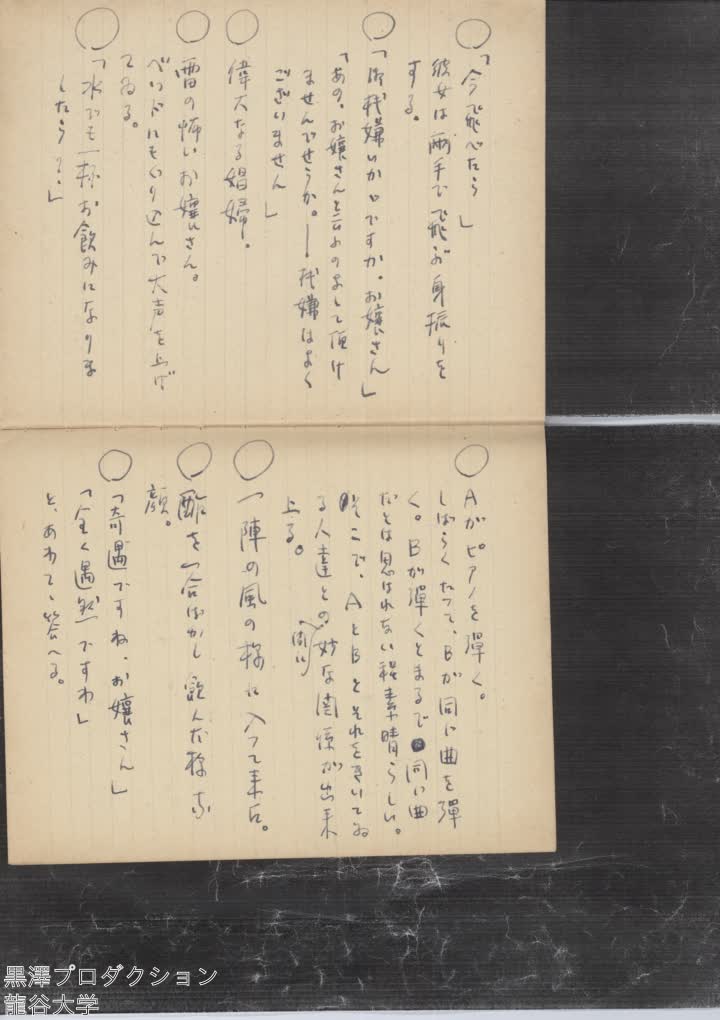 ○「今飛べたら」
彼女は両手で飛ぶ身振りを
する。
○「御機嫌いかゞですか。お嬢さん」
「あの。お嬢さんと云ふのよして頂け
ませんでせうか。——機嫌はよく
ございません」
○偉大なる娼婦。
○雷の怖いお嬢さん。
ベッドにもぐり込んで大声を上げ
てゐる。
○「水でも一杯お飲みになりま
したら？」
○Aがピアノを弾く。
しばらくたって、Bが同じ曲を弾
く。Bが弾くとまるで同じ曲
だとは思はれない程素晴らしい。
そこで、AとBとそれをきいてゐ
る人達との間に妙な関係が出来
上る。
○一陣の風の様に入って来た。
○酢を一合ばかし飲んだ様な
顔。
○「奇遇ですね、お嬢さん」
「全く偶然ですわ」
と、あわてゝ答へる。
黒澤プロダクション
龍谷大学